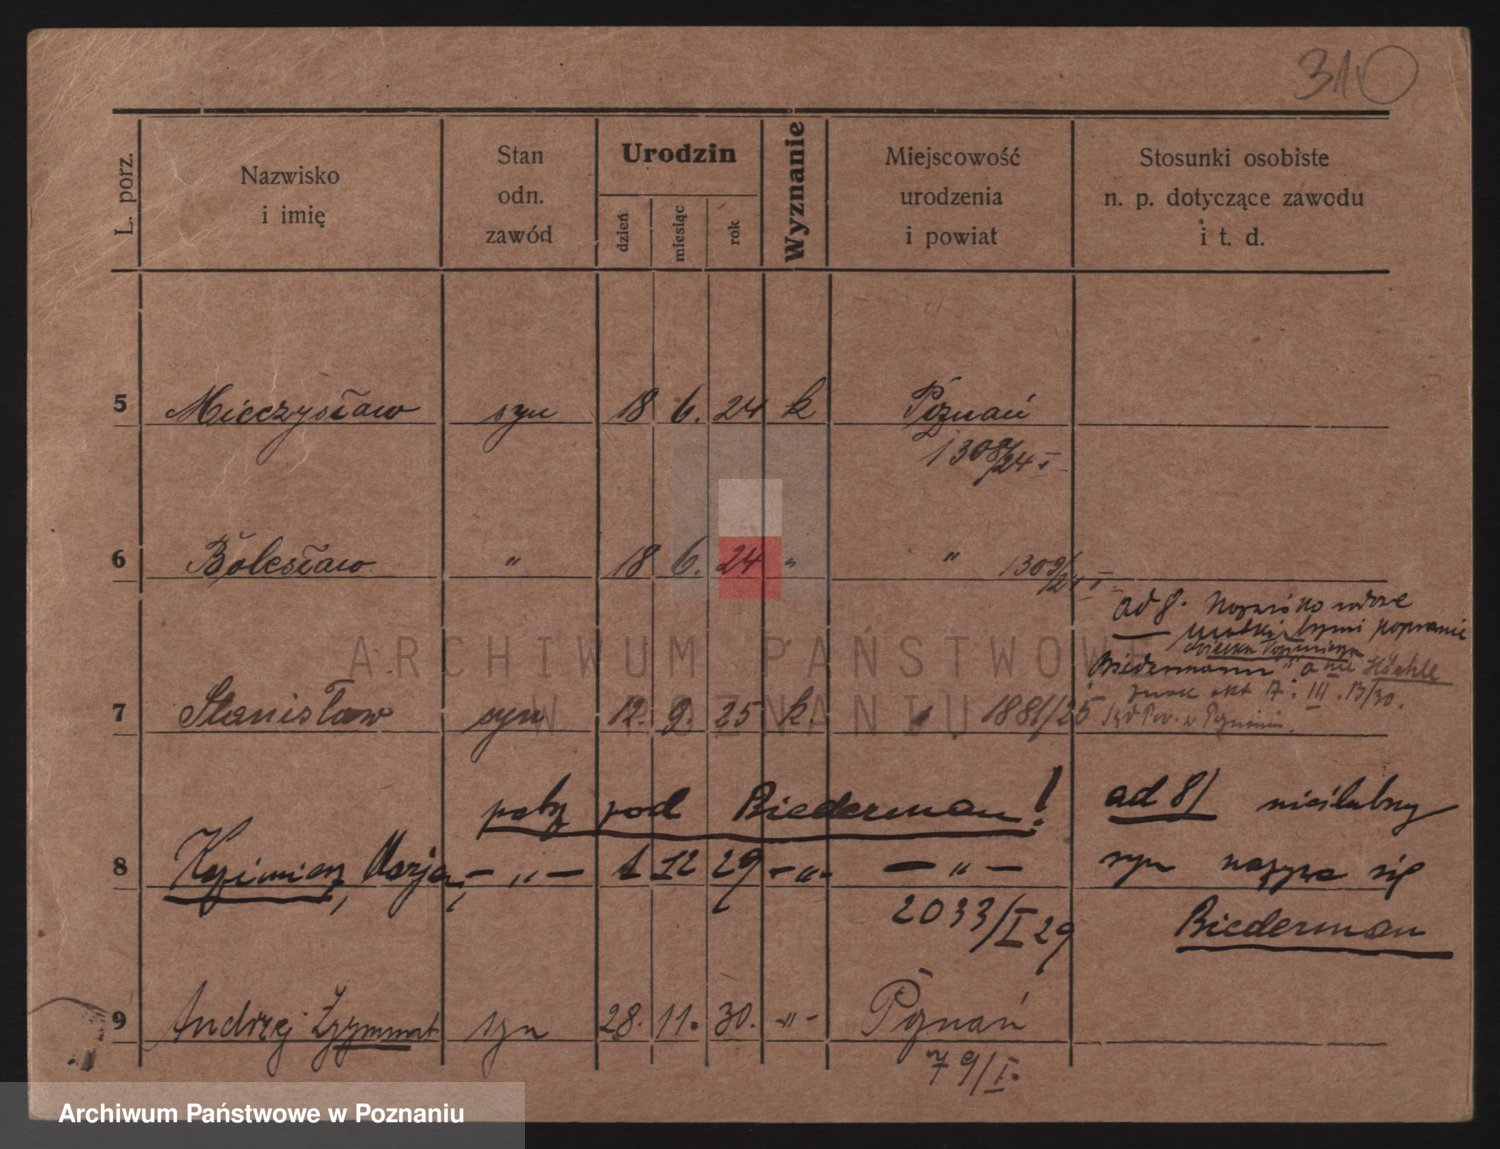 310
L. porz.
Nazwisko
i imię
Stan
odn.
zawód
Urodzin
dzień
miesiąc
rok
Wyznanie
Miejscowość
urodzenia
i powiat
Stosunki osobiste
n. p. dotyczące zawodu
i t. d.
5 Mieczysław syn 18 6. 24 k Poznań
1308/24 I
6 Bolesław " 18 6. 24 " " 1309/24 I
ad 8. Nazwisko
matki brzmi poprawnie
Biedermann" a nie
znak akt 17. III. 13/30.
7 Stanisław syn 12. 9. 25 k. " 1881/25 Sąd Pow. w Poznaniu.
pod Biederman! ad 8/ nieślubny
8 Kazimierz, Marjan, - " - 1 12 29 - " - - " - syn nazywa się
2033/I 29 Biederman
9 Andrzej Zygmunt syn 28. 11. 30. - " - Poznań
79/I.
ARCHIWUM PAŃSTWOWE
W POZNANIU
Archiwum Państwowe w Poznaniu